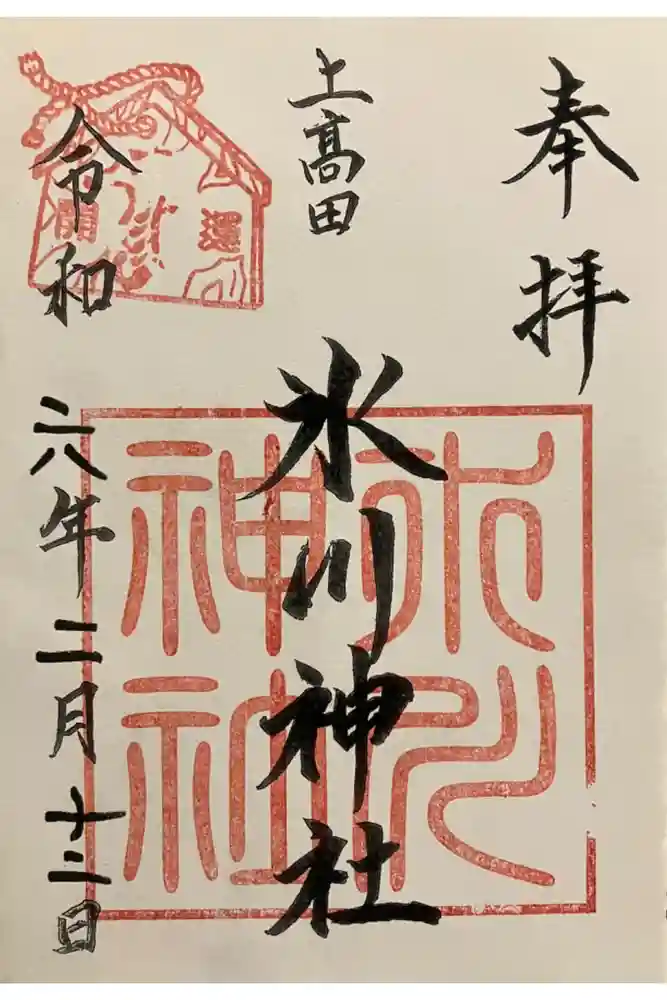 奉拝
上高田
氷川神社
令和六年二月十三日
開運
氷川
神社